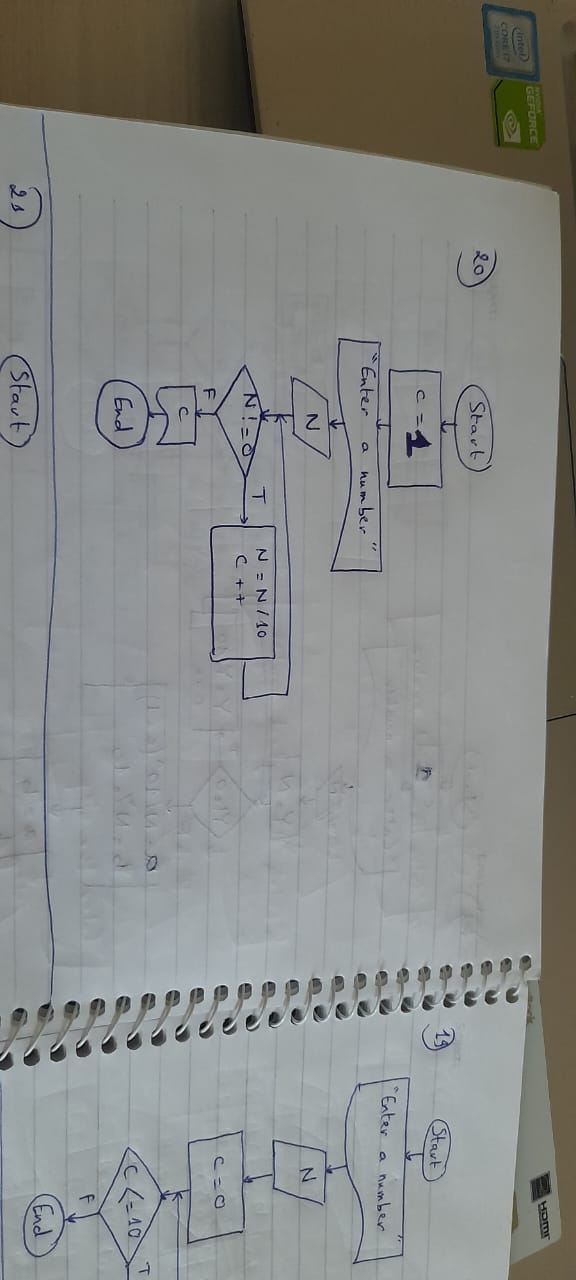 intel
CORE i7
NVIDIA
GEFORCE
HDMI
20)
Start
C = 1
"Enter a number"
N
N != 0
T
N = N / 10
C ++
F
C
End
21)
Start
19)
Start
"Enter a number"
N
C = 0
C <= 10
T
F
End